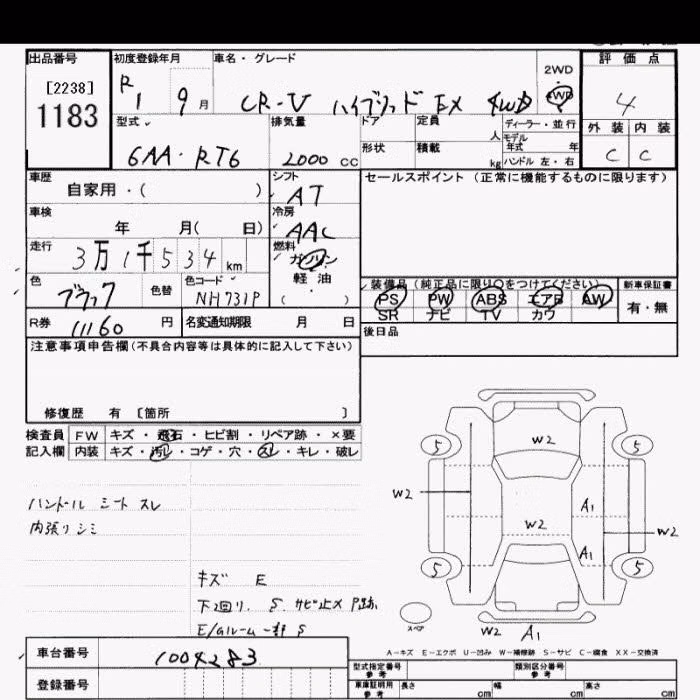 出品番号 初度登録年月 車名・グレード 評価点
[2238]
1183
R1 9月 CR-V ハイブリッド EX 4WD 2WD 4WD 4
型式 排気量 ドア 定員 人 ディーラー・並行 外装 内装
モデル年式 年
6AA・RT6 2000cc 形状 積載 kg ハンドル 左・右 C C
車歴 シフト セールスポイント(正常に機能するものに限ります)
自家用・( ) AT
車検 冷房
年 月( 日) AAC
走行 燃料
3万1千534km ガソリン
軽油
( ・ )
色 色替 色コード 装備品(純正品に限り○をつけてください) 新車保証書
ブラック NH731P PS PW ABS エアB AW 有・無
SR ナビ TV カワ
R券 11160円 名変通知期限 月 日 後日品
注意事項申告欄(不具合内容等は具体的に記入して下さい)
修復歴 有 [箇所 ]
検査員 FW キズ・飛石・ヒビ割・リペア跡・×要
記入欄 内装 キズ・汚レ・コゲ・穴・スレ・キレ・破レ
ハンドル シート スレ
内張リシミ
キズ E
下回リ. S. サビ止メ P跡
E/Gルーム一部 S
W2
5 5
W2 A1
W2 W2
A1
5 5
スペア W2 A1
A-キズ E-エクボ U-凹み W-補修跡 S-サビ C-腐食 XX-交換済
車台番号 1004283
登録番号
型式指定番号 参考 類別区分番号 参考
車庫証明用 参考 長さ cm 幅 cm 高さ cm